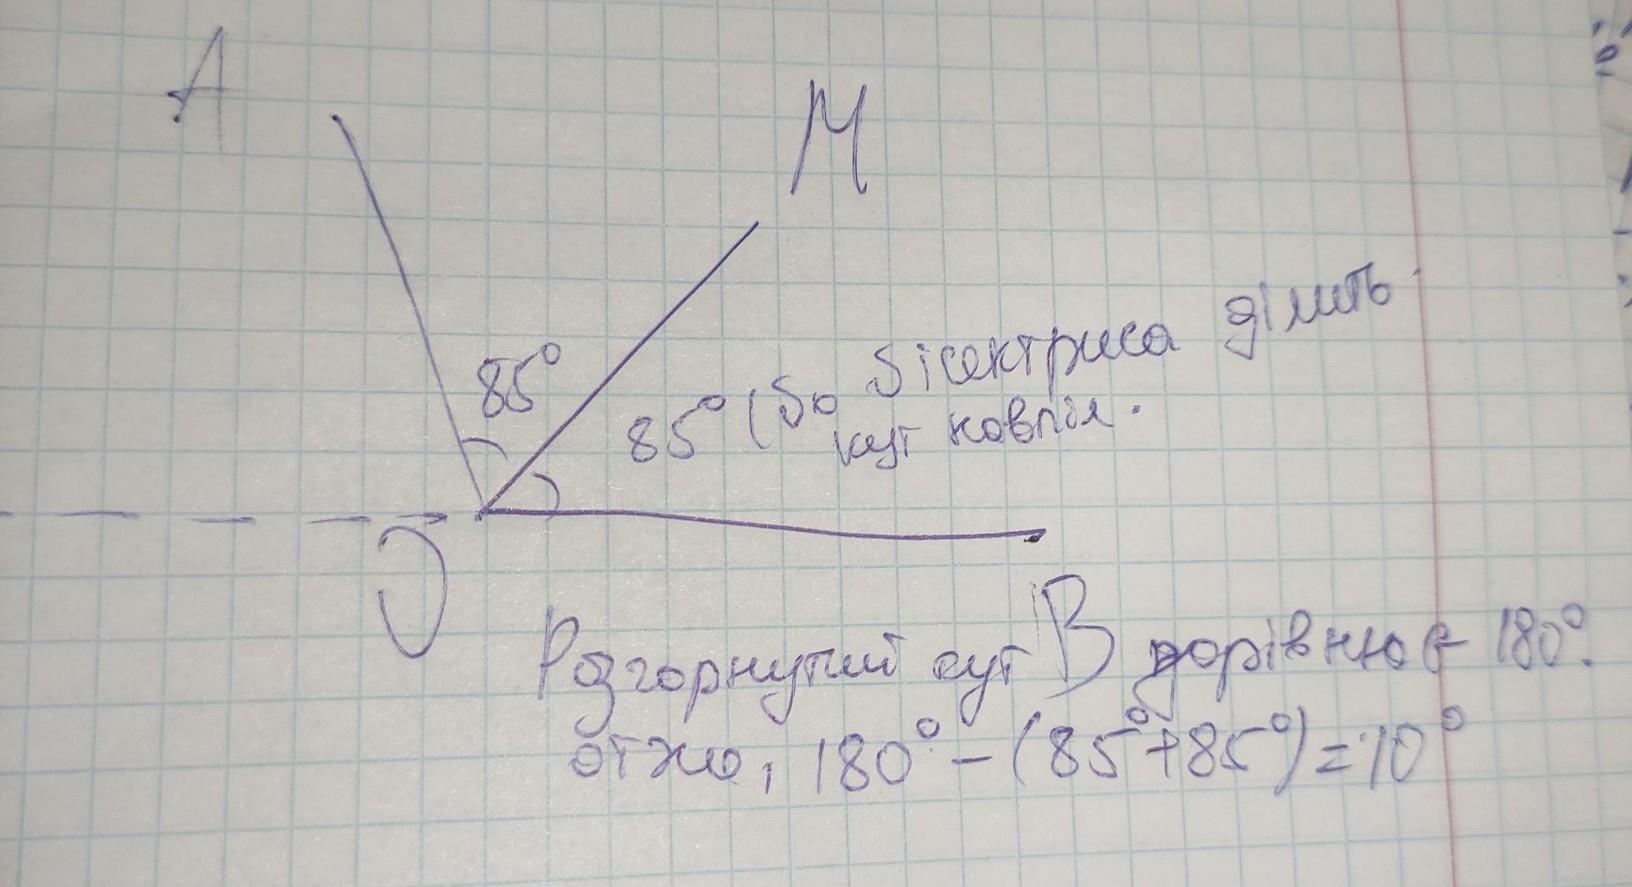 А
М
85°
85° (бо бісектриса ділить
кут навпіл.
О
В
Розгорнутий кут дорівнює 180°.
отже, 180° - (85°+85°) = 10°